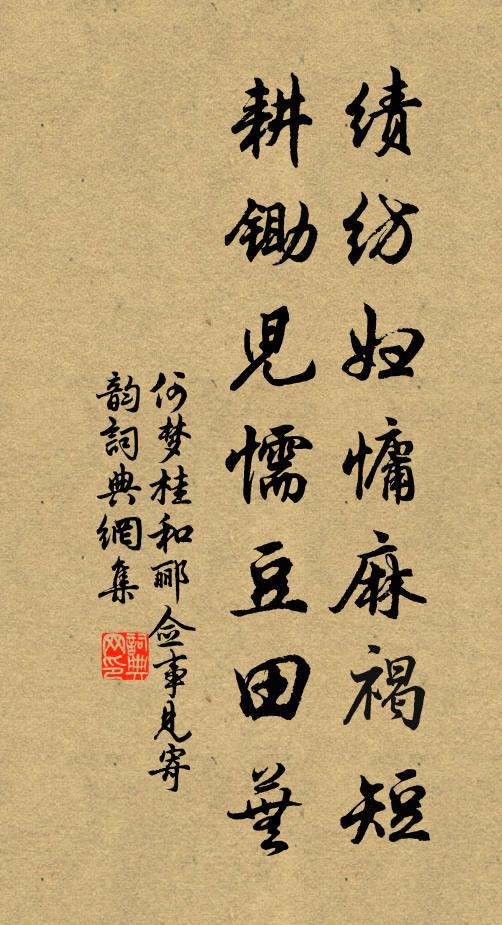 绩纺妇慵麻褐短
耕锄儿懦豆田芜
何梦桂和郦佥事见寄
韵词典網集
詞典网印